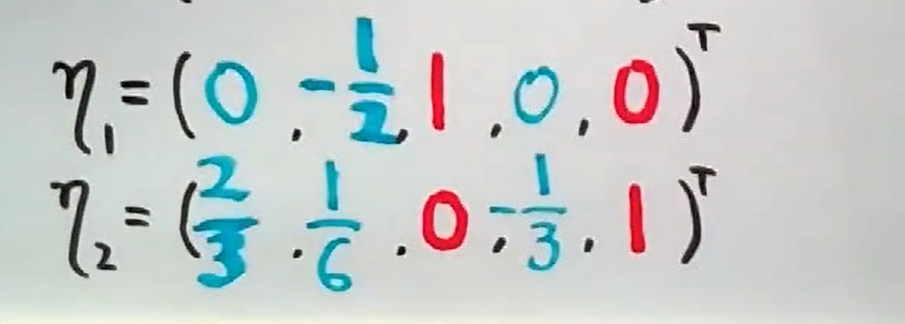 η₁ = (0, -1/2, 1, 0, 0)ᵀ
η₂ = (2/3, 1/6, 0, -1/3, 1)ᵀ